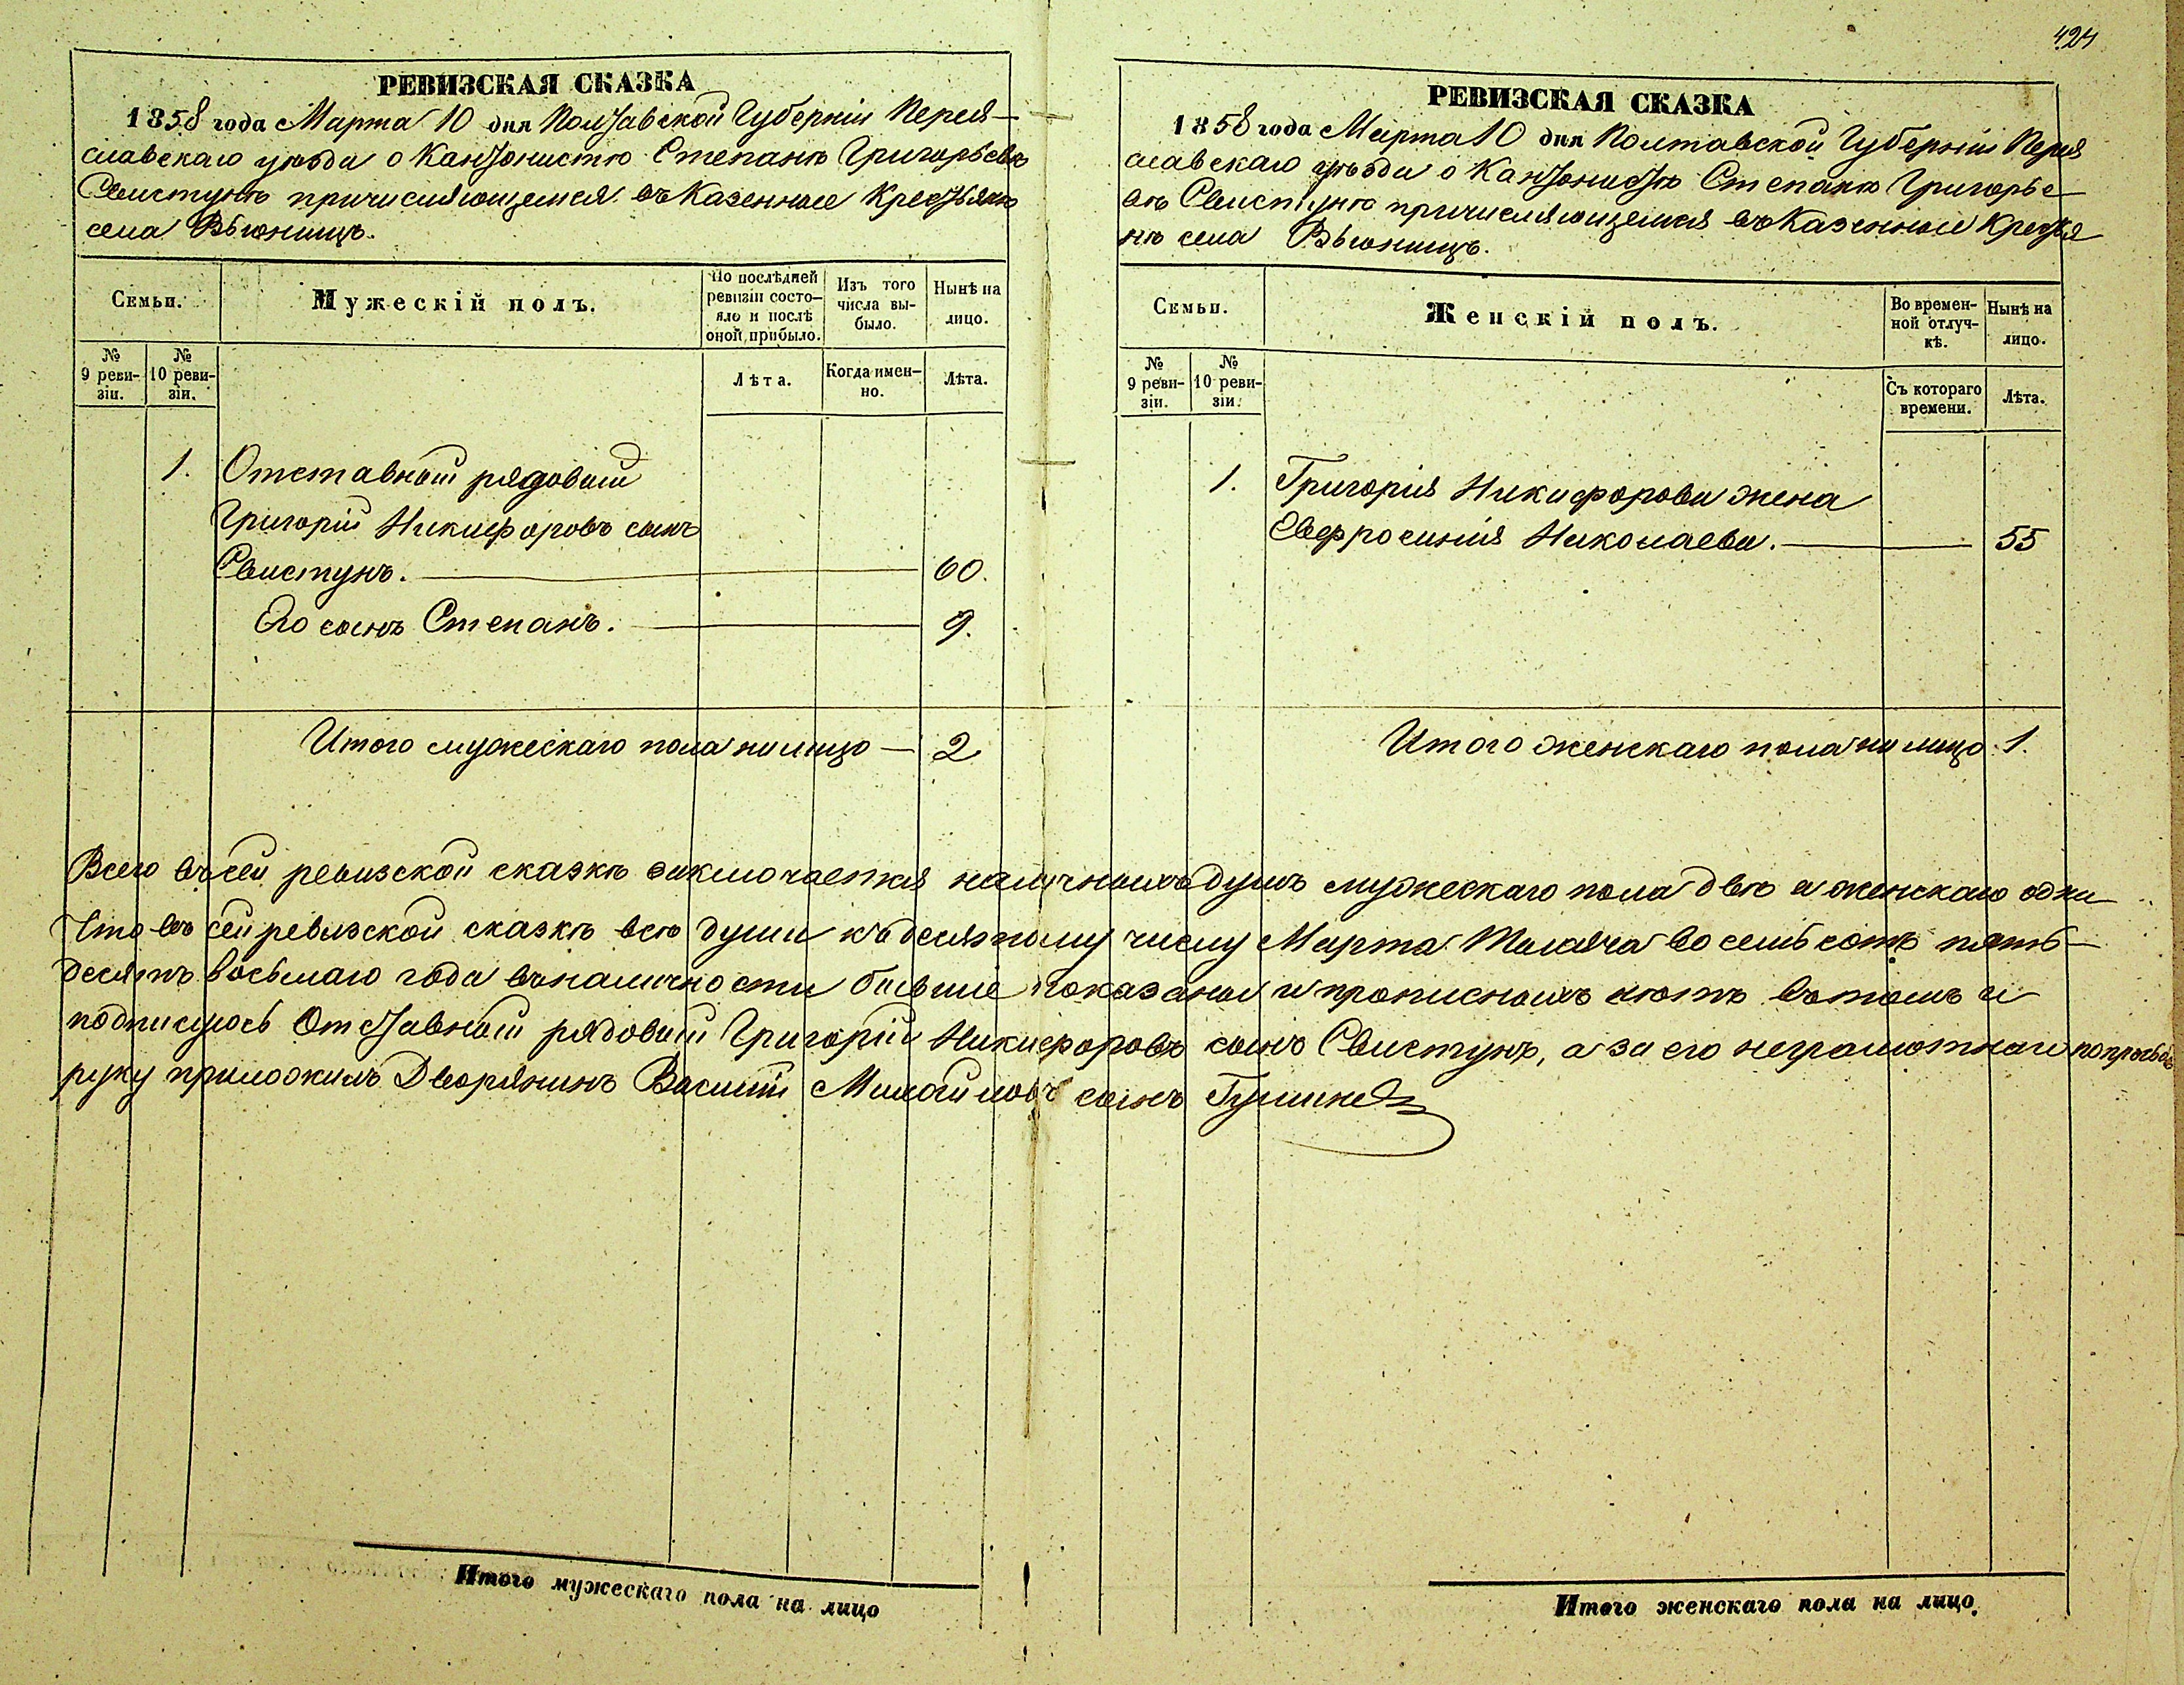 424
РЕВИЗСКАЯ СКАЗКА
1858 года Марта 10 дня Полтавской Губерніи Перея-
славскаго уѣзда о Кантонистѣ Степанѣ Григорьевѣ
Свистунѣ причисляющемся въ Казенные Крестьяне
села Вьюнищъ.
Семьи.
Мужескій полъ.
По послѣдней
ревизіи состо-
яло и послѣ
оной прибыло.
Изъ того
числа вы-
было.
Нынѣ на
лицо.
№
9 реви-
зіи.
№
10 реви-
зіи.
Лѣта.
Когда имен-
но.
Лѣта.
1. Отставной рядовой
Григорій Никифоровъ сынъ
Свистунъ. 60.
Его сынъ Степанъ. 9.
Итого мужескаго пола на лицо — 2
РЕВИЗСКАЯ СКАЗКА
1858 года Марта 10 дня Полтавской Губерніи Перея
славскаго уѣзда о Кантонистѣ Степанѣ Григорье-
вѣ Свистунѣ причисляющемся въ Казенные Крестья
не села Вьюнищъ.
Семьи.
Женскій полъ.
Во времен-
ной отлуч-
кѣ.
Нынѣ на
лицо.
№
9 реви-
зіи.
№
10 реви-
зіи.
Съ котораго
времени.
Лѣта.
1. Григорія Никифорова жена
Евфросинія Николаева. 55
Итого женскаго пола на лицо 1.
Всего въ сей ревизской сказкѣ заключается наличныхъ душъ мужескаго пола двѣ а женскаго одна
Что въ сей ревизской сказкѣ всѣ души къ десятому числу Марта Тысяча восемьсотъ пять-
десятъ восьмаго года въ наличности бывшіе показаны и прописныхъ нѣтъ въ томъ и
подписуюсь Отставной рядовой Григорій Никифоровъ сынъ Свистунъ, а за его неграмотнаго по прозьбѣ
руку приложилъ Дворянинъ Василій сынъ
Итого мужескаго пола на лицо
Итого женскаго пола на лицо.